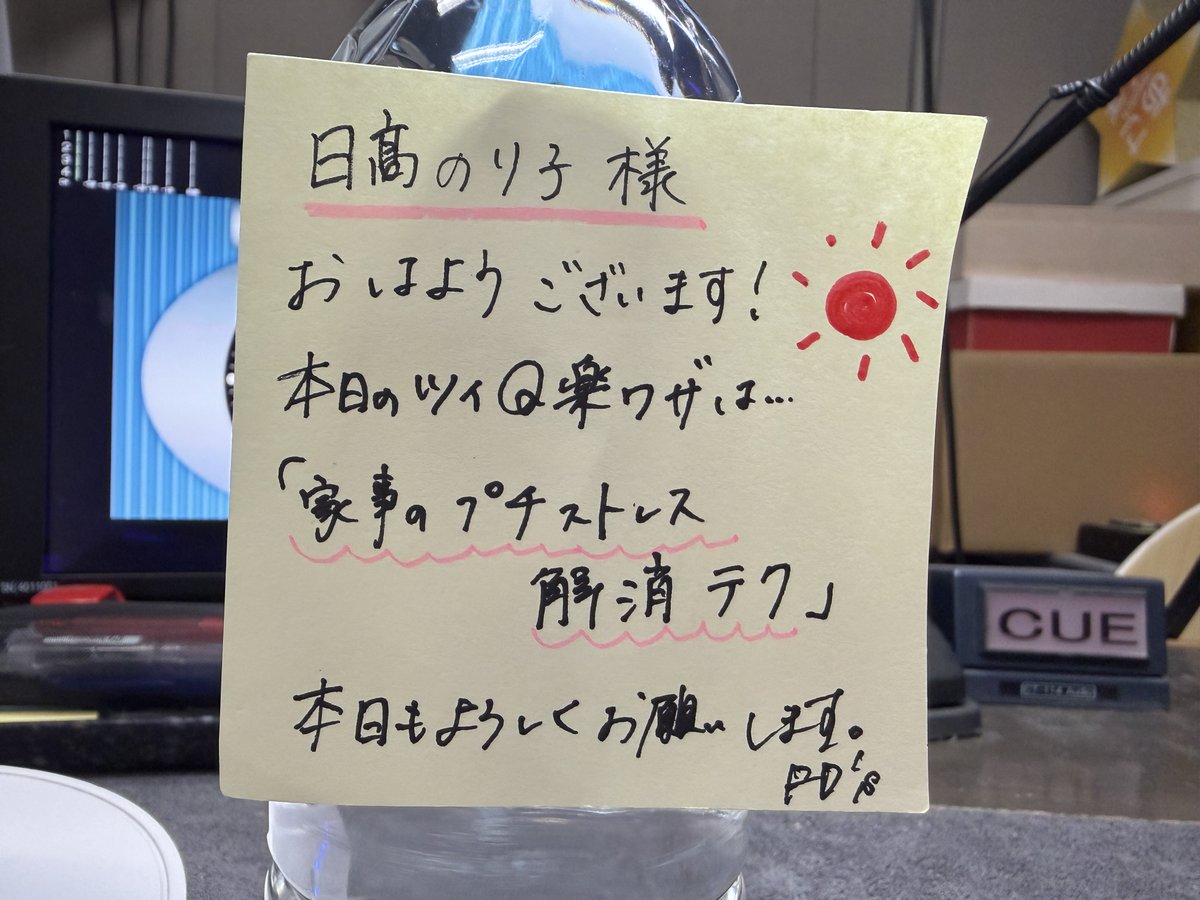 日髙のり子 様
おはようございます!
本日のツイQ楽ワザは…
「家事のプチストレス
解消テク」
本日もよろしくお願いします。
PD's
CUE